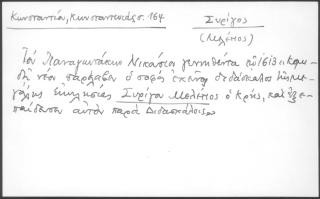 Κωνσταντίου, Κωνσταντινιάς σ. 164
Συρίγος
(Μελέτιος)
Τὸν Παναγιωτάκην Νικούσιον γεννηθέντα τῷ 1613
νέον παραλαβὼν ὁ σοφὸς ἐκεῖνος διδάσκαλος τῆς με-
γάλης ἐκκλησίας Συρίγου Μελέτιος ὁ Κρής, καὶ ἐξε-
παίδευσεν αὐτὸν παρὰ διδασκάλοις